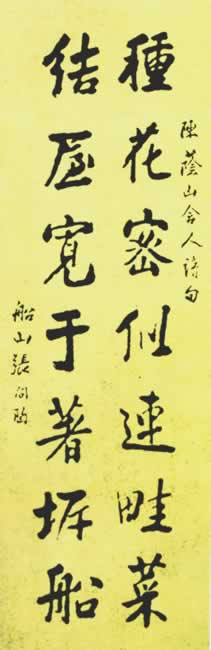 陳蔭山舍人詩句
種花密似連畦菜
結屋寬于著船
船山張問陶